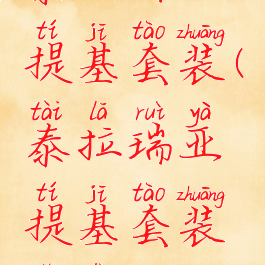 tí jī tào zhuāng
提基套装(
tài lā ruì yà
泰拉瑞亚
tí jī tào zhuāng
提基套装